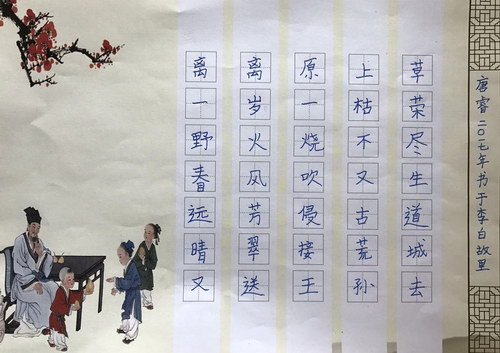 离离原上草
一岁一枯荣
野火烧不尽
春风吹又生
远芳侵古道
晴翠接荒城
又送王孙去
唐睿二〇一七年书于李白故里